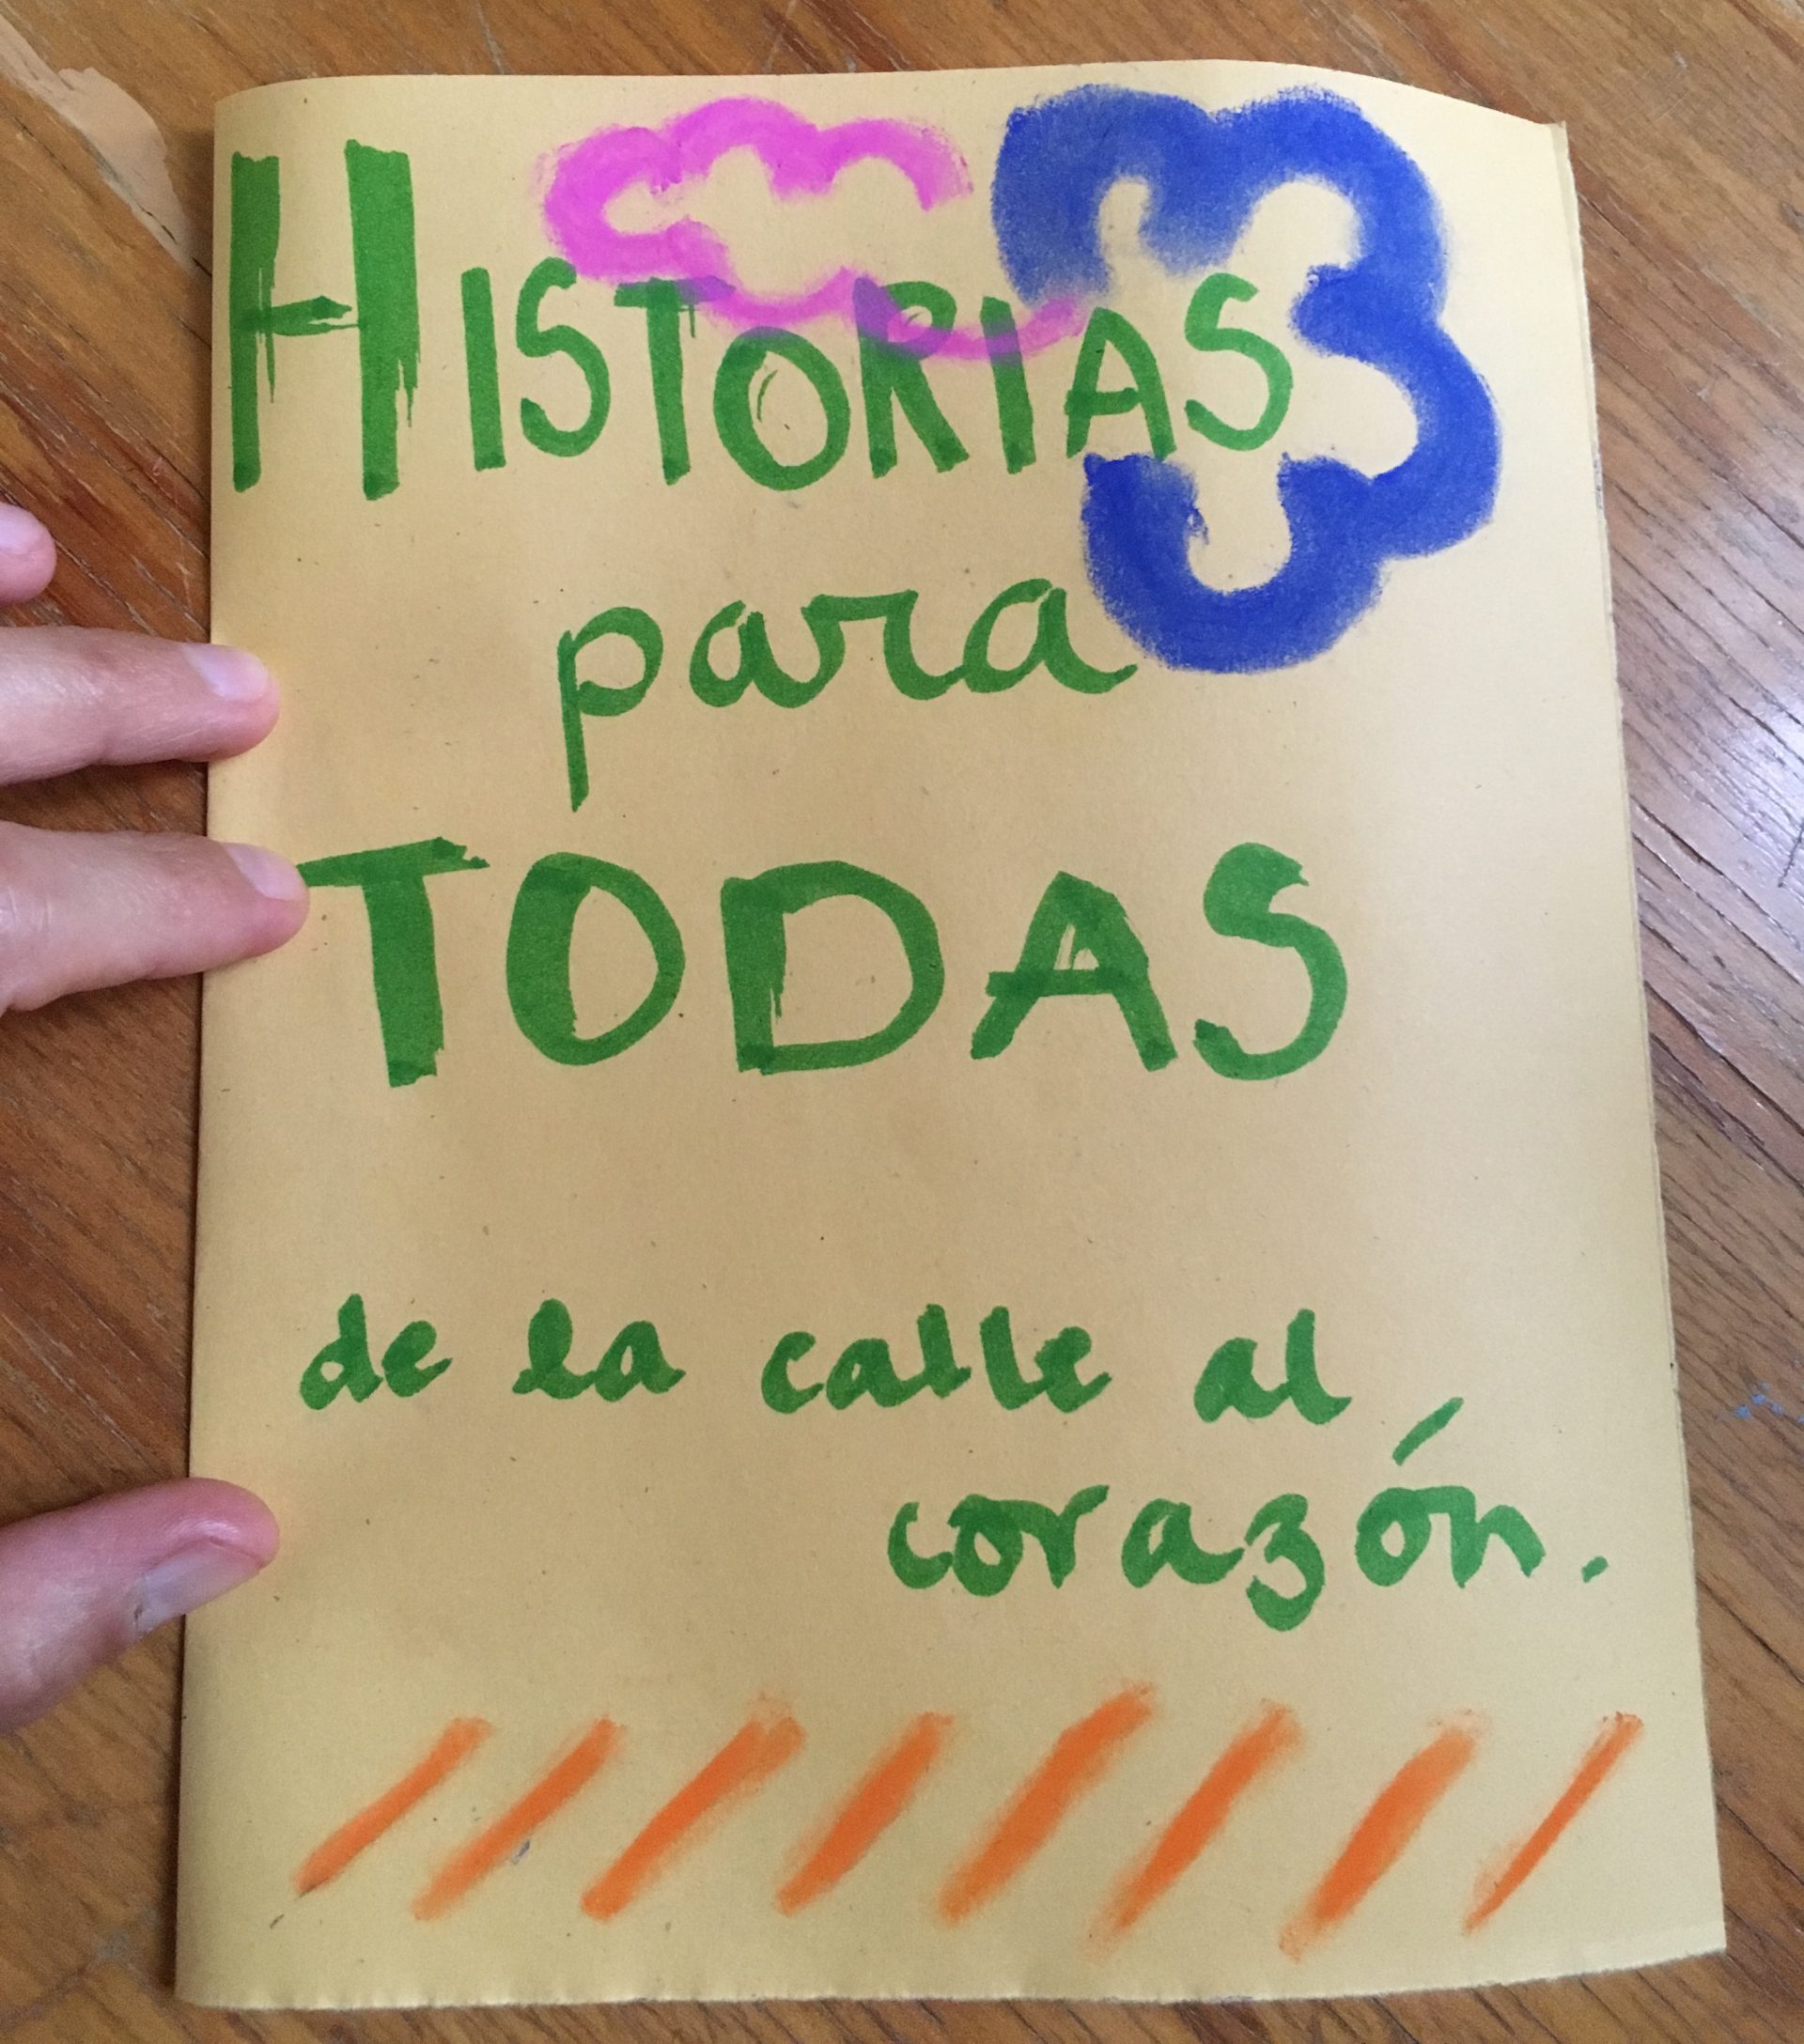 HISTORIAS
para
TODAS
de la calle al
corazón.